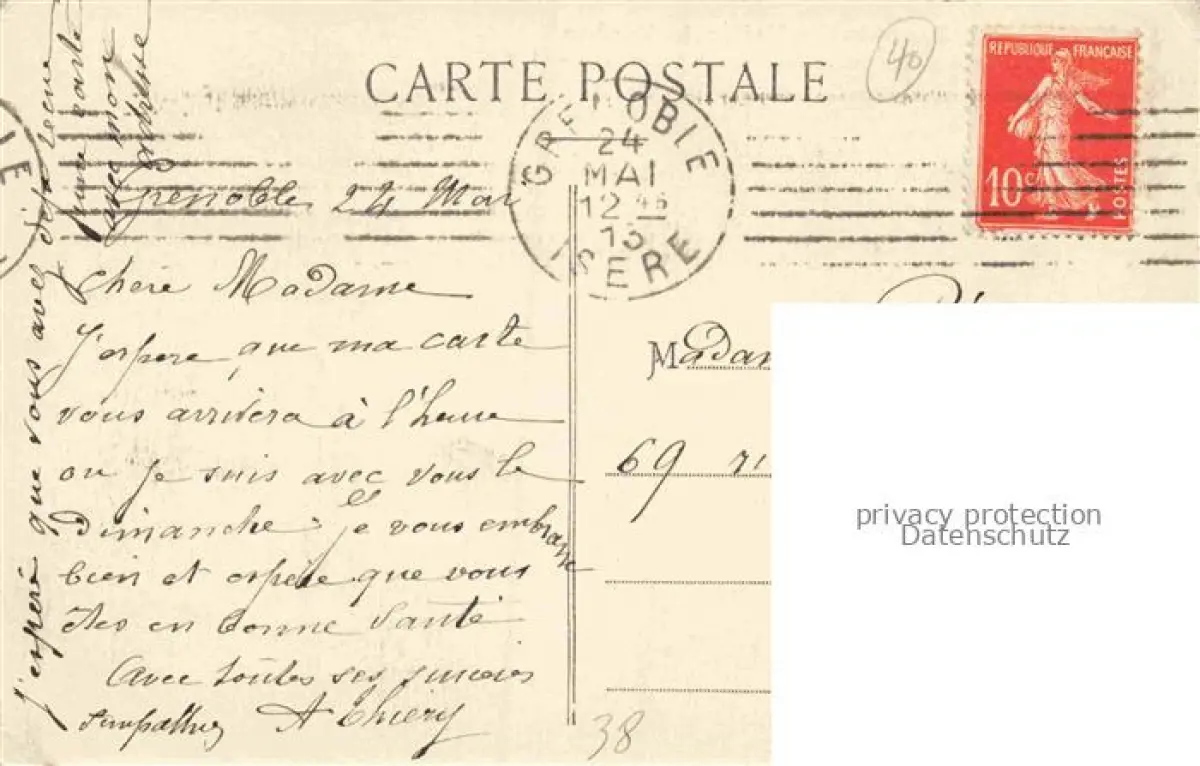 CARTE POSTALE
40
REPUBLIQUE FRANÇAISE
10 C
POSTES
GRENOBLE
24
MAI
12 45
ISERE
Grenoble 24 Mai
Chère Madame
J'espere que ma carte
vous arrivera à l'heure
ou je suis avec vous le
Dimanche je vous embrasse
bien et espère que vous
êtes en bonne santé
Avec toutes ses sincères
sympathies A Thiery
J'espère que vous avez déjà reçue
une carte
avec mon
Madam
69 r
38
privacy protection
Datenschutz